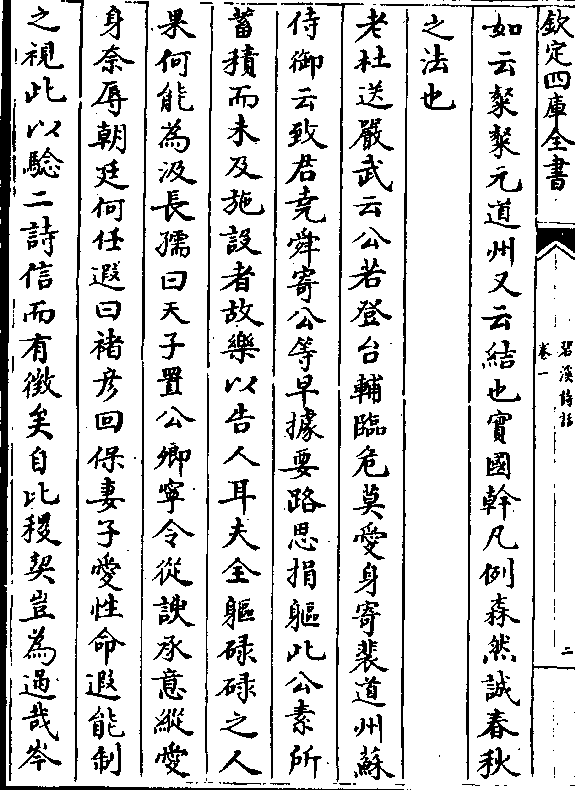 欽定四庫全書
䂬溪詩話
卷一
二
如云粲粲元道州又云結也實國幹凡例森然誠春秋
之法也
老杜送嚴武云公若登台輔臨危莫愛身寄裴道州蘇
侍御云致君堯舜寄公等早據要路思捐軀此公素所
蓄積而未及施設者故樂以告人耳夫全軀碌碌之人
果何能為汲長孺曰天子置公卿寧令從諛承意縱愛
身奈辱朝廷何任遐曰禇彦回保妻子愛性命遐能制
之視此以驗二詩信而有徴矣自比稷契豈為過哉岑